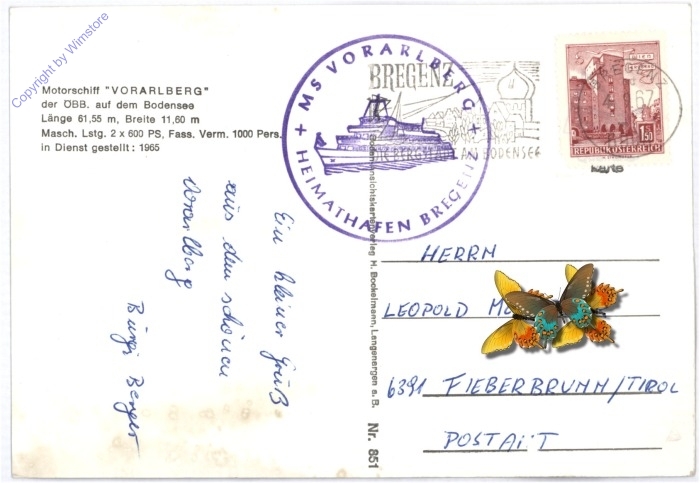 Copyright by Wimstore
Motorschiff "VORARLBERG"
der ÖBB. auf dem Bodensee
Länge 61,55 m, Breite 11,60 m
Masch. Lstg. 2 x 600 PS, Fass. Verm. 1000 Pers.
in Dienst gestellt : 1965
+ MS VORARLBERG +
HEIMATHAFEN BREGENZ
BREGENZ
AM BODENSEE
WIEN
1.50
REPUBLIK ÖSTERREICH
Karte
Ein kleiner Gruß
aus dem schönen
Vorarlberg
Burgi Berger
Bodenansichtskartenverlag H. Bockelmann, Langenargen a. B. Nr. 851
HERRN
LEOPOLD
6391 FIEBERBRUNN/TIROL
POSTAMT